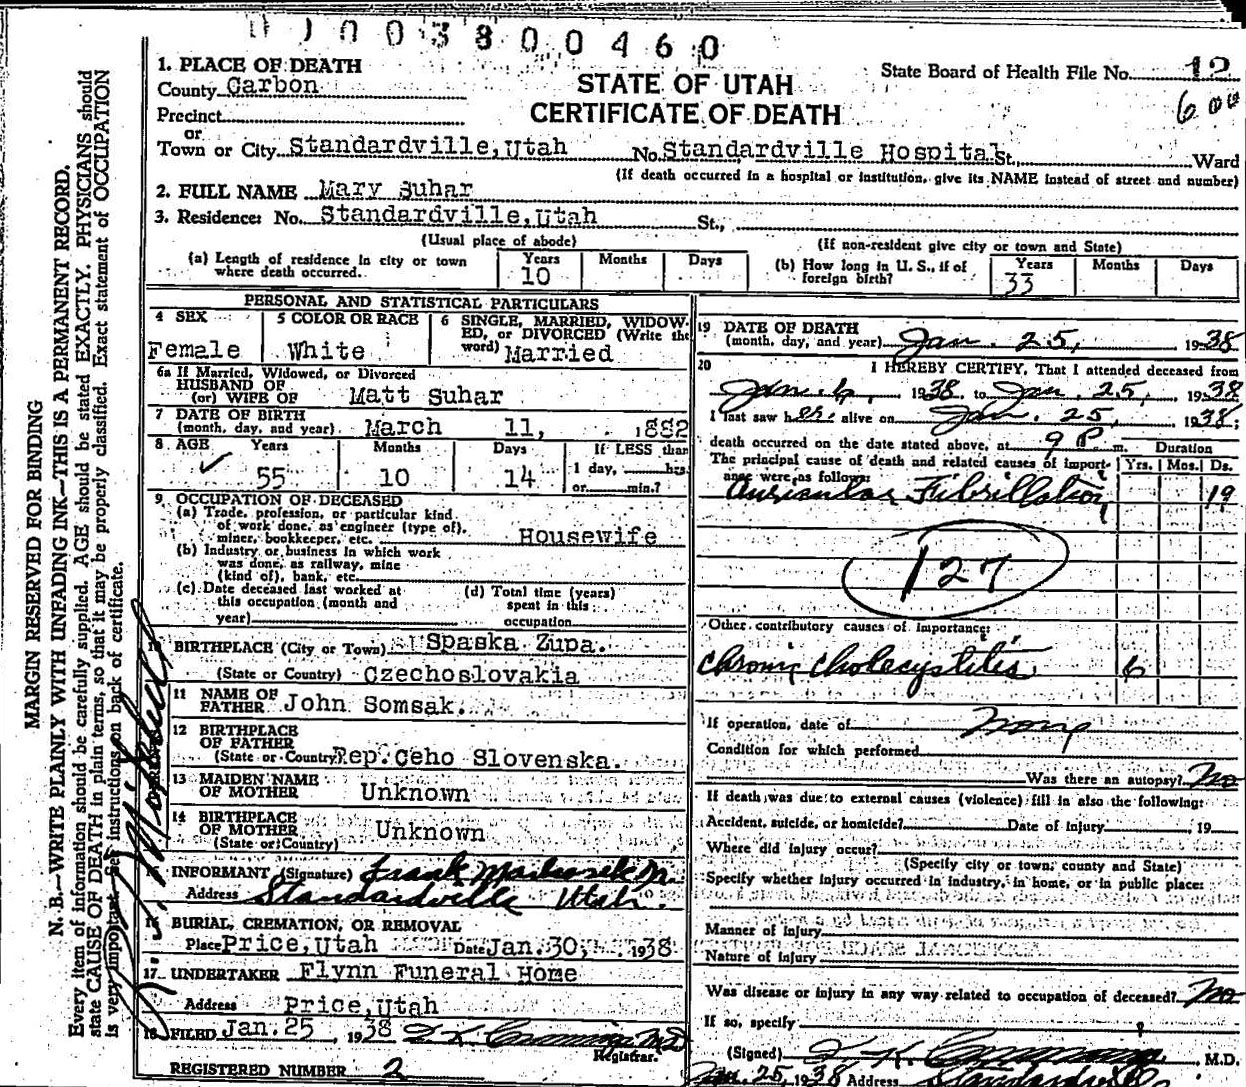 0 0 3 8 0 0 4 6 0
1. PLACE OF DEATH
County Carbon
Precinct
or
Town or City Standardville, Utah No. Standardville Hospital St., Ward
STATE OF UTAH
CERTIFICATE OF DEATH
State Board of Health File No. 12
600
(If death occurred in a hospital or institution, give its NAME instead of street and number)
2. FULL NAME Mary Suhar
3. Residence: No. Standardville, Utah St.,
(Usual place of abode) (If non-resident give city or town and State)
(a) Length of residence in city or town where death occurred. Years 10 Months Days
(b) How long in U. S., if of foreign birth? Years 33 Months Days
PERSONAL AND STATISTICAL PARTICULARS
4 SEX Female
5 COLOR OR RACE White
6 SINGLE, MARRIED, WIDOWED, or DIVORCED (Write the word) Married
6a If Married, Widowed, or Divorced
HUSBAND OF
(or) WIFE OF Matt Suhar
7 DATE OF BIRTH
(month, day, and year) March 11, 1882
8 AGE Years 55 Months 10 Days 14
If LESS than
1 day, hrs.
or min.?
9 OCCUPATION OF DECEASED
(a) Trade, profession, or particular kind
of work done, as engineer (type of),
miner, bookkeeper, etc. Housewife
(b) Industry or business in which work
was done, as railway, mine
(kind of), bank, etc.
(c) Date deceased last worked at
this occupation (month and
year)
(d) Total time (years)
spent in this
occupation
BIRTHPLACE (City or Town) Spaska Zupa.
(State or Country) Czechoslovakia
11 NAME OF
FATHER John Somsak.
12 BIRTHPLACE
OF FATHER
(State or Country) Rep. Ceho Slovenska.
13 MAIDEN NAME
OF MOTHER Unknown
14 BIRTHPLACE
OF MOTHER
(State or Country) Unknown
INFORMANT (Signature) Frank
Address Standardville Utah.
BURIAL, CREMATION, OR REMOVAL
Place Price, Utah Date Jan. 30, 1938
17 UNDERTAKER Flynn Funeral Home
Address Price, Utah
FILED Jan. 25, 1938 M.D
Registrar.
REGISTERED NUMBER 2
19 DATE OF DEATH
(month, day, and year) Jan. 25, 1938
20 I HEREBY CERTIFY, That I attended deceased from
Jan. 6, 1938 to Jan. 25, 1938
I last saw her alive on Jan. 25, 1938;
death occurred on the date stated above, at 9 P m. Duration
The principal cause of death and related causes of importance were as follows: Yrs. Mos. Ds.
Auricular Fibrillation 19
127
Other contributory causes of importance:
Chronic Cholecystitis 6
If operation, date of None
Condition for which performed
Was there an autopsy? No
If death was due to external causes (violence) fill in also the following:
Accident, suicide, or homicide? Date of Injury , 19
Where did injury occur?
(Specify city or town, county and State)
Specify whether injury occurred in industry, in home, or in public place:
Manner of injury
Nature of injury
Was disease or injury in any way related to occupation of deceased? No
If so, specify
(Signed) M.D.
Jan. 25, 1938 Address Standardville
MARGIN RESERVED FOR BINDING
N. B.—WRITE PLAINLY WITH UNFADING INK—THIS IS A PERMANENT RECORD.
Every item of information should be carefully supplied. AGE should be stated EXACTLY. PHYSICIANS should
state CAUSE OF DEATH in plain terms, so that it may be properly classified. Exact statement of OCCUPATION
is very important. See instructions on back of certificate.